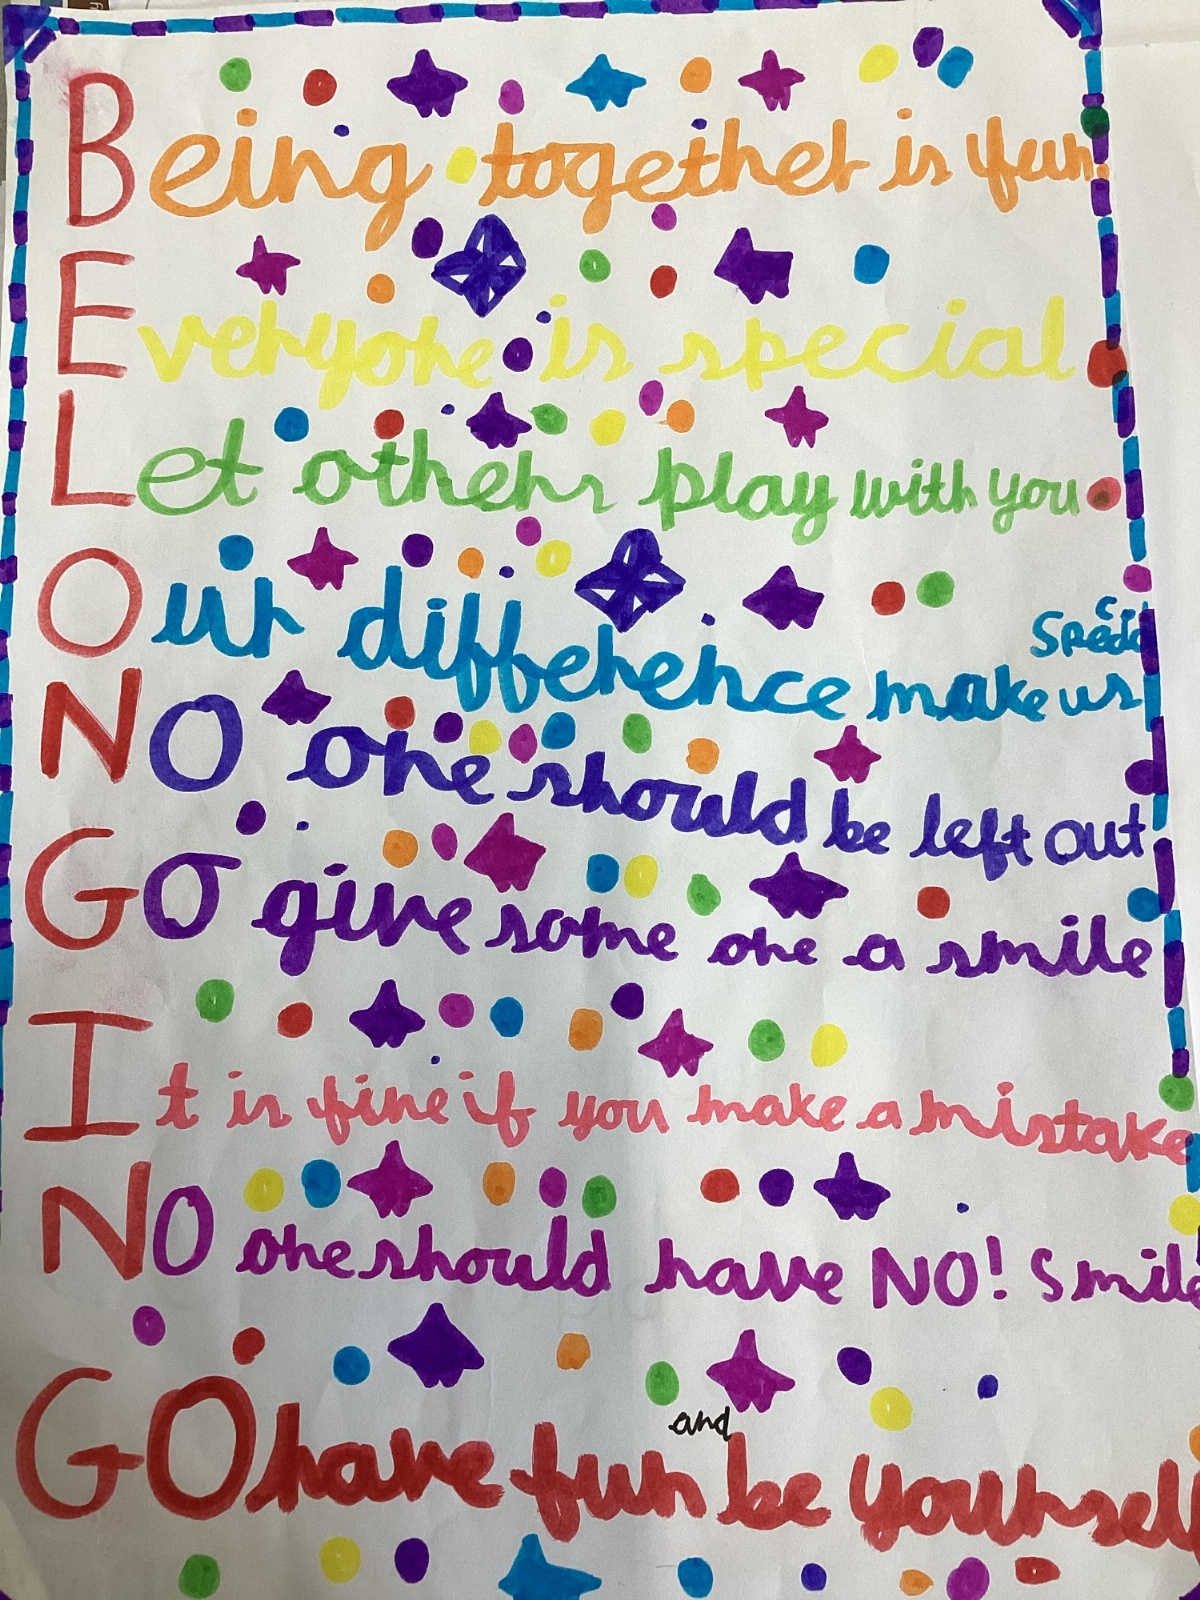 Being together is fun!
Everyone is special
Let others play with you
Our difference make us special
NO one should be left out
Go give some one a smile
It is fine if you make a mistake
NO one should have NO! Smile
GO have fun and be yourself